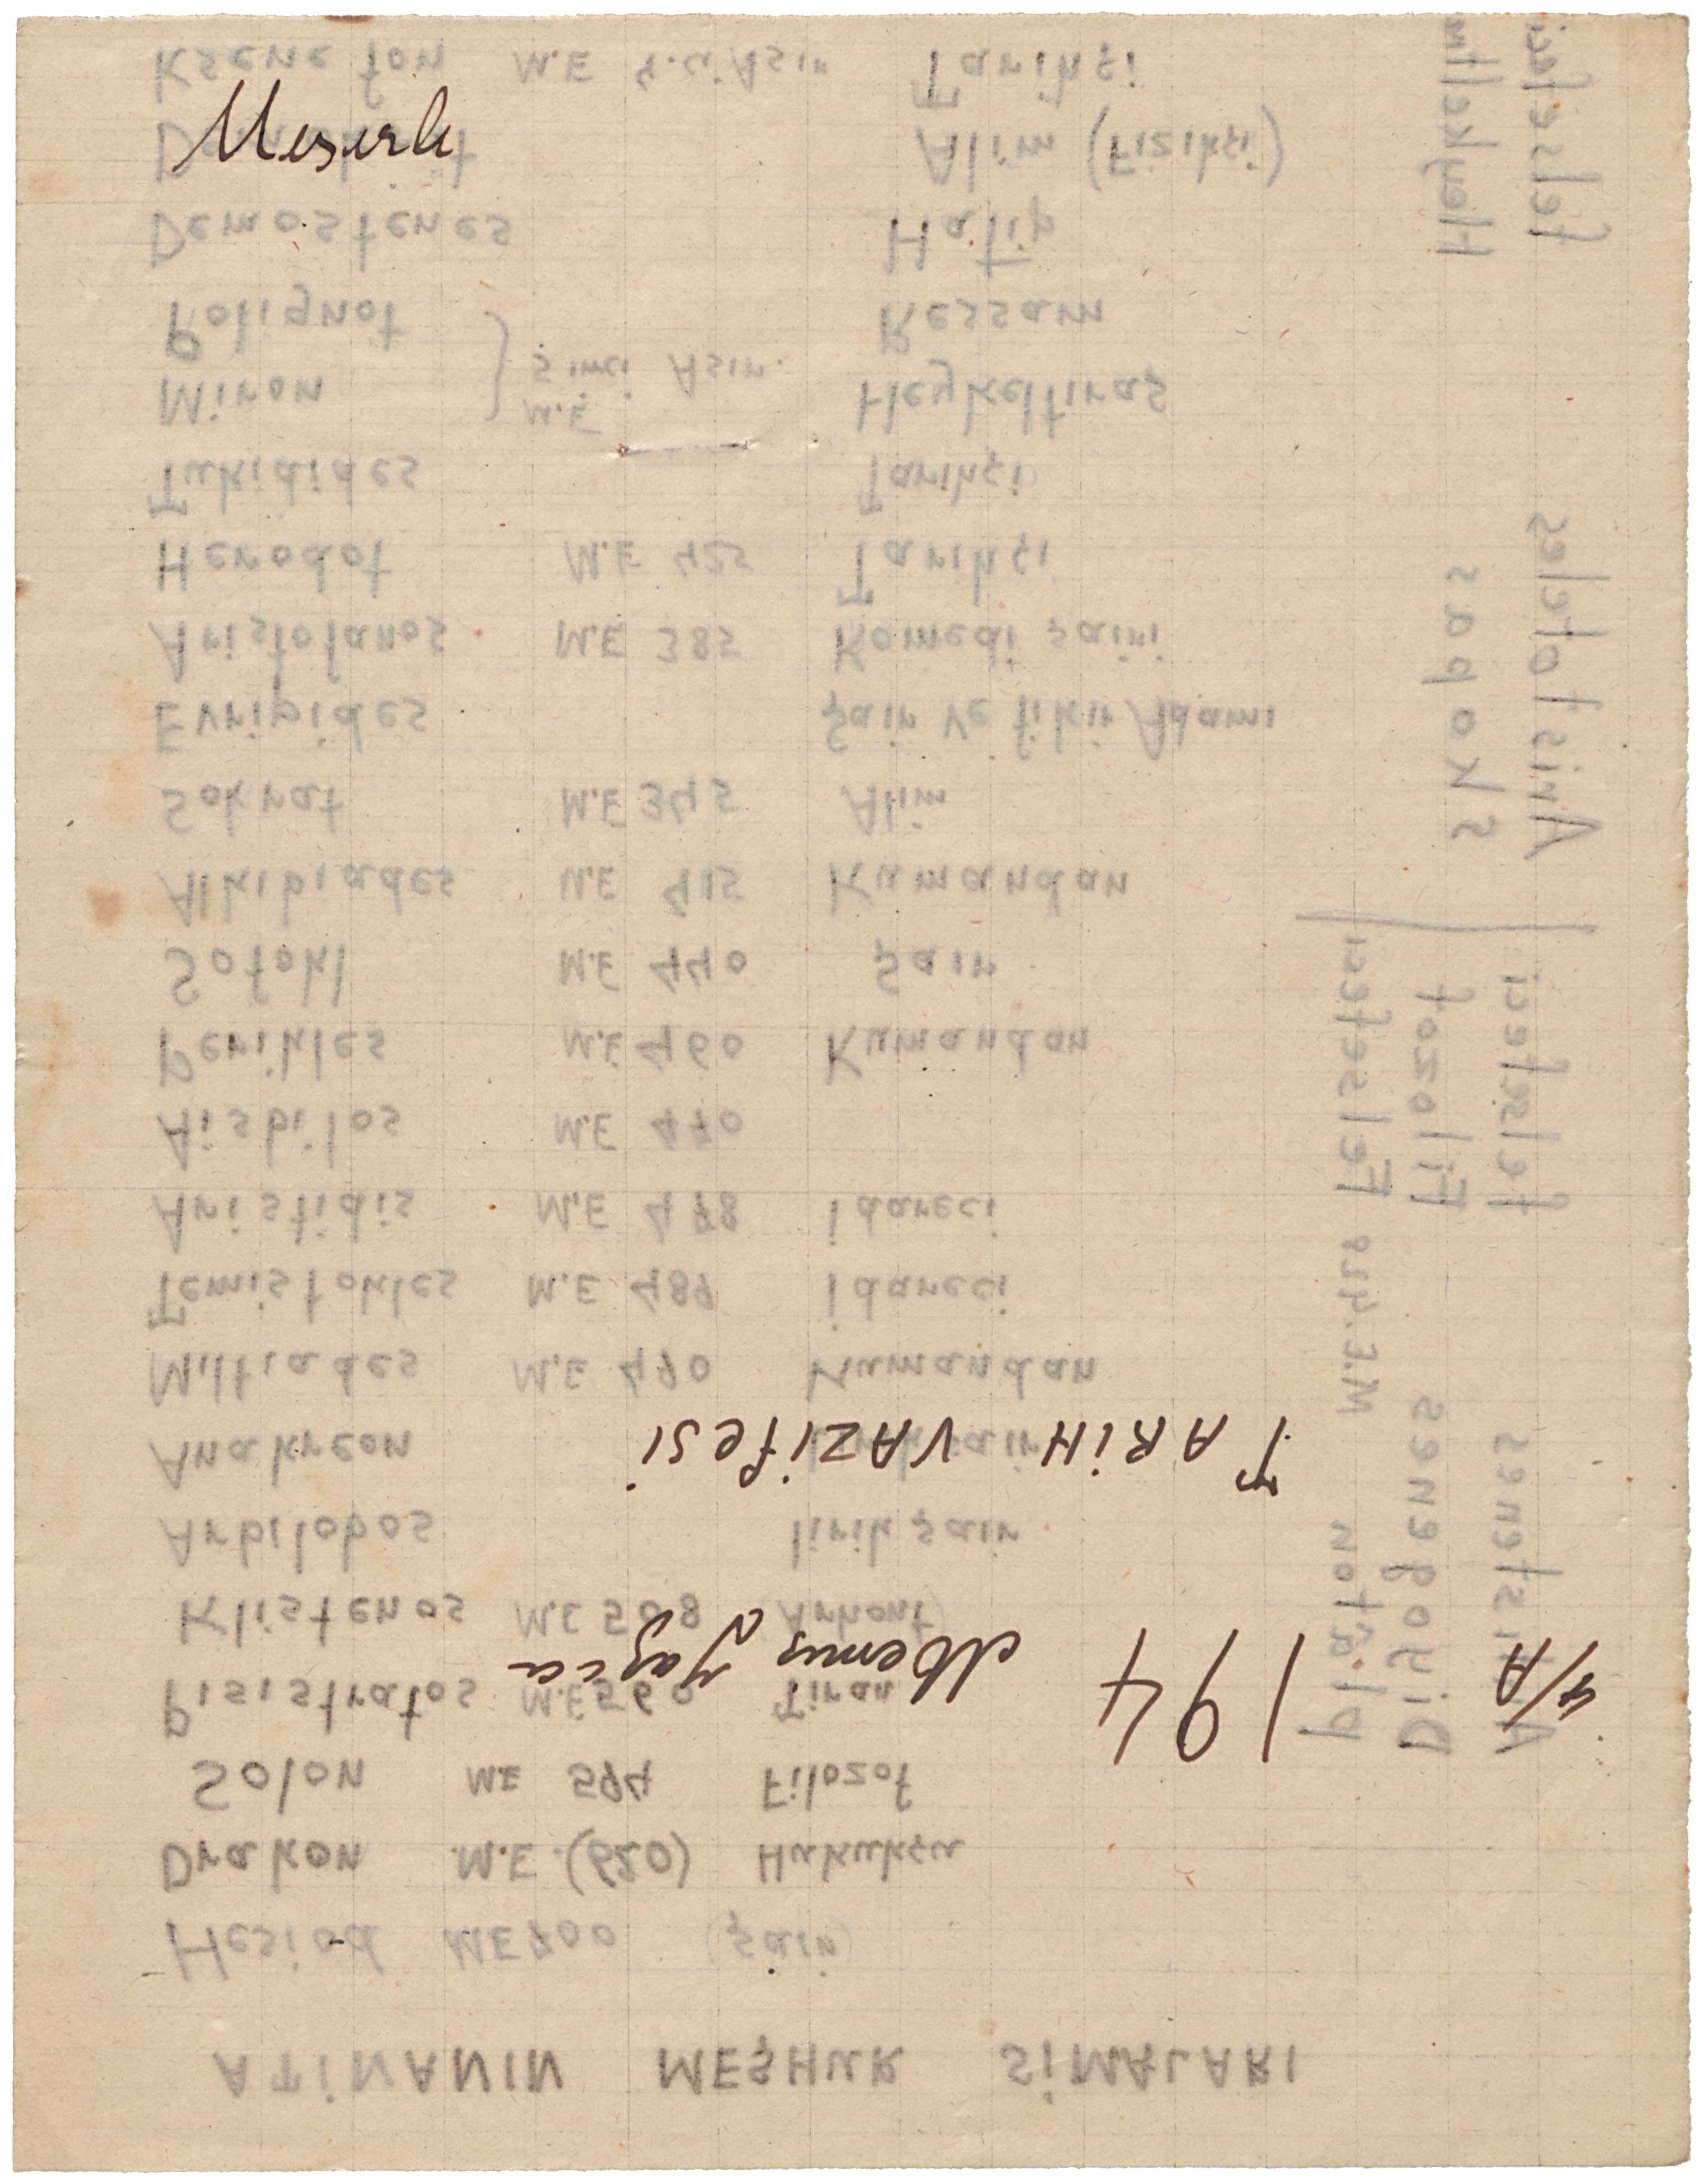 TARİH VAZİFESİ
4/A 194
Yazıcı
ATİNANIN MEŞHUR SİMALARI
Hesiod M.E 700 (şair)
Drakon M.E. (620) Hukukçu
Solon M.E 594 Filozof
Pisistratos M.E 560 Tiran
Klistenos M.E 508 (Arhont)
Arbilobos lirik şair
Anakreon şair
Miltiades M.E 490 Kumandan
Temistokles M.E 489 İdareci
Aristidis M.E 478 İdareci
Aisbilos M.E 470
Perikles M.E 460 Kumandan
Sofokl M.E 440 Şair
Alkibiades M.E 415 Kumandan
Sokrat M.E 345 Alim
Evripides Şair ve fikir Adamı
Aristofanos M.E 385 Komedi şairi
Herodot M.E 425 Tarihçi
Tukidides Tarihçi
Miron M.E Heykeltıraş
Polignot 5 inci Asır. Ressam
Demostenes Hatip
Alim (Fizikçi)
Ksenefon M.E 4.cü Asır Tarihçi
Plâton M.E. Felsefeci
Diyogenes Filozof
Antistenes felsefeci
Skopas
Aristoteles felsefeci